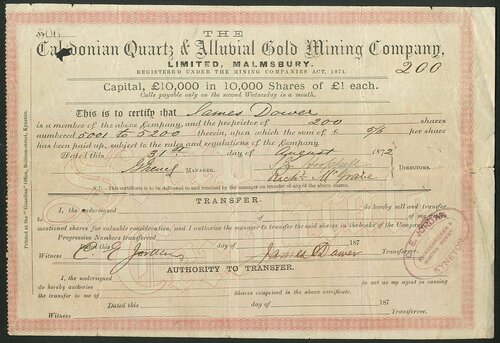 THE
Caledonian Quartz & Alluvial Gold Mining Company,
LIMITED, MALMSBURY.
REGISTERED UNDER THE MINING COMPANIES ACT, 1871.
200
Capital, £10,000 in 10,000 Shares of £1 each.
Calls payable only on the second Wednesday in a month.
This is to certify that James Dower
is a member of the above Company, and the proprietor of 200 shares
numbered 5001 to 5200 therein, upon which the sum of
has been paid, subject to the rules and regulations of the Company.
Dated this 31st day of August 1872
MANAGER.
DIRECTORS.
N.B. This certificate is to be delivered to and retained by the manager on transfer of any of the above shares.
TRANSFER.
I, the undersigned do hereby sell and transfer
to
mentioned shares for valuable consideration, and I authorise the manager to transfer the said shares in the books of the Company
Progressive Numbers transferred
Dated this day of 187
Witness James Dower Transferor.
AUTHORITY TO TRANSFER.
I, the undersigned
do hereby authorise to act as my agent in causing
the transfer to me of Shares comprised in the above certificate.
Dated this day of 187
Witness Transferee.
Printed at the "Guardian" Office, Mollison-street, Kyneton.